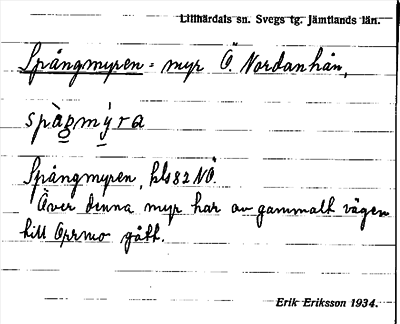 Lillhärdals sn. Svegs tg. Jämtlands län.
Spångmyren = myr Ö. Nordanhån,
spàg̰mýra
Spångmyren, kls82NÖ
Över denna myr har av gammalt vägen
till Ormo gått.
Erik Eriksson 1934.